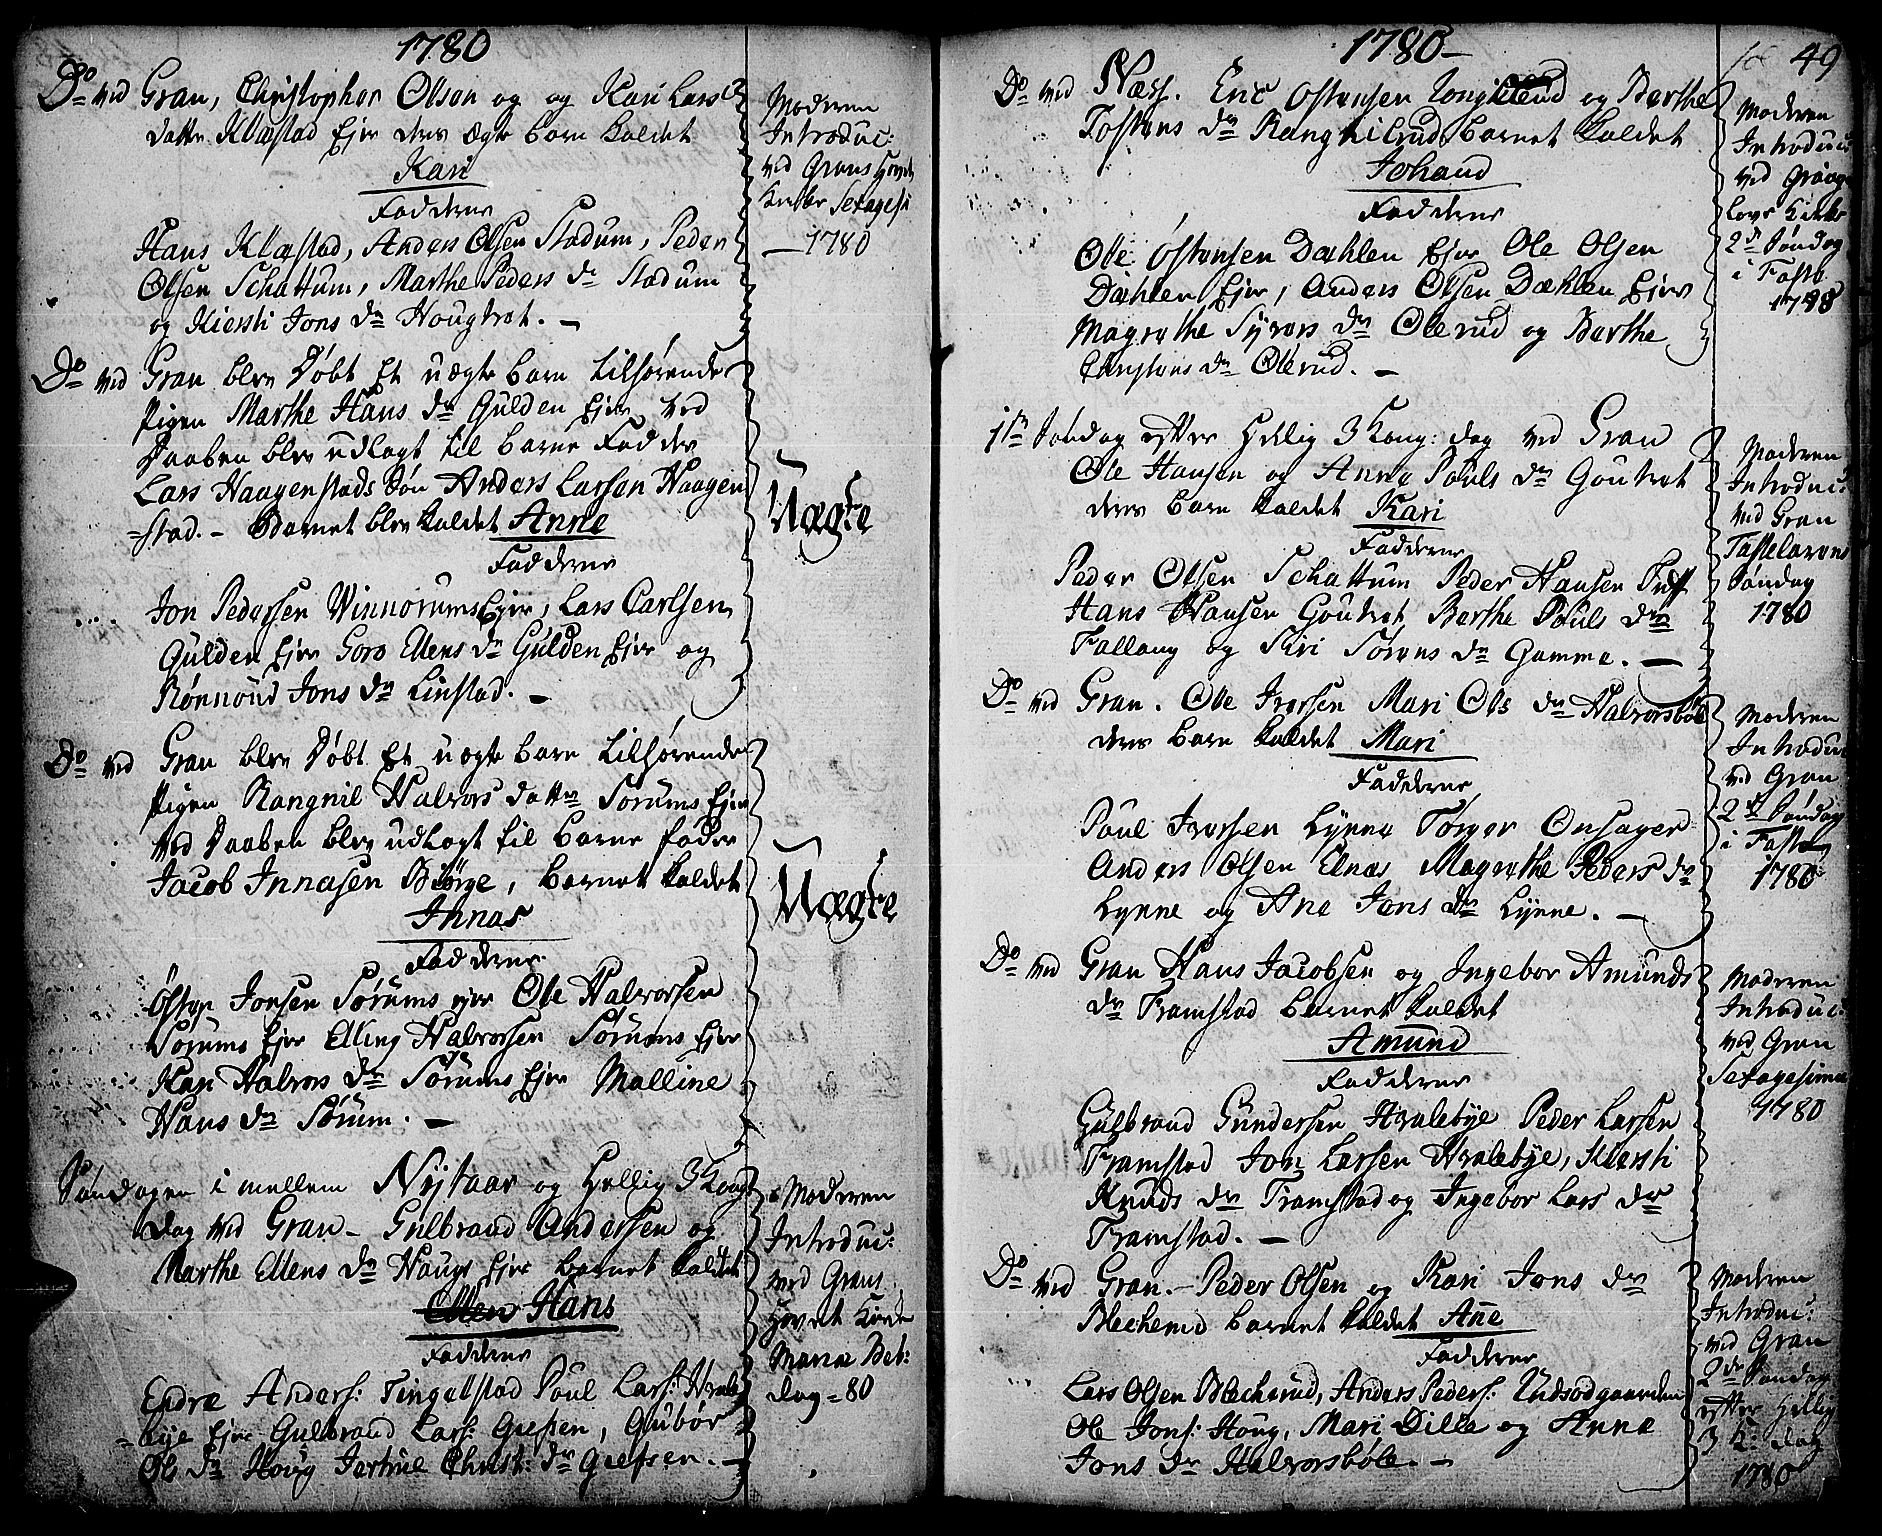 1780
Do ved Gran, Christopher Olsen og og Kari Lars
datter Klæstad Ejer deres ægte barn kaldet
Kari
Fadderne
Hans Klæstad, Anders Olsen Stadum, Peder
Olsen Schattum, Marthe Peders dr Stadum
og Kiersti Jons dr Hougtvet. —
Moderen
Introduc:
ved Grans Hovet
Kirke Sexagesi
— 1780
Do ved Gran blev Døbt Et uægte barn tilhørende
Pigen Marthe Hans dr Gulden Ejer ved
Daaben blev udlagt til barne Fadder
Lars Haagenstads Søn Anders Larsen Haagen
=stad. — Barnet blev kaldet Anne
Fadderne
Jon Pedersen Winnorums Ejer, Lars Carlsen
Gulden Ejer Goro Ellens dr Gulden Ejer og
Rønnoud Jons dr Linstad. —
Uægte
Do ved Gran blev Døbt Et uægte barn tilhørende
Pigen Rangnil Halvors datter Sørums Ejer
ved Daaben blev udlagt til barne fader
Jacob Innasen Biørge, barnet kaldet
Innas
Fadderne
Østen Jonsen Sørums ejer Ole Halvorsen
Sørums Ejer Elling Halvorsen Sørums Ejer
Kari Halvors dr Sørums Ejer Malline
Hans dr Sørum. —
Uægte
Søndagen i mellem Nytaar og Hellig 3 Kong:
dag ved Gran — Gulbrand Andersen og
Marthe Ellens dr Haugs Ejer barnet kaldet
Ellen Hans
Fadderne
Endre Anders: Tingelstad Poul Lars: Hvale
=bye Ejer Gulbrand Lars: Grefsen, Gubør
Ols dr Houg Jertrue Christ: dr Grefsen. —
Moderen
Introduc:
ved Grans
Hovet Kirke
Mariæ Bet:
dag = 80
1780 —
49
Do ved Næss. Eric Ostensen og Barthe
Tostens dr Ranghilrud barnet kaldet
Johand
Fadderne
Ole Ostensen Dæhlen Ejer Ole Olsen
Dæhlen Ejer, Anders Olsen Dæhlen Ejer
Magrethe Syvers dr Olerud og Barthe
Christens dr Olerud. —
Moderen
Introduc:
ved Grinage
lovs Kirke
2d Søndag
i Fast:
1780
1ste Søndag efter Hellig 3 Kong: dag ved Gran
Ole Hansen og Anne Pouls dr Goutvet
deres barn kaldet Kari
Fadderne
Peder Olsen Schattum Peder Hansen
Hans Hansen Goutvet Barthe Pouls dr
Fallang og Siri Sørens dr Gamme. —
Moderen
Introduc:
ved Gran
Fastelavens
Søndag
1780
Do ved Gran. Ole Iversen Mari Ols dr Halvorsbøle
deres barn kaldet Mari
Fadderne
Poul Iversen Lynne Torger Onsager
Anders Olsen Elnæs Magrethe Peders dr
Lynne og Ane Jons dr Lynne. —
Moderen
Introduc:
ved Gran
2d Søndag
i Fasten
1780
Do ved Gran Hans Jacobsen og Ingebor Amunds
dr Framstad barnet kaldet
Amund
Fadderne
Gulbrand Gundersen Hvalebye Peder Larsen
Framstad Jon Larsen Hvalebye, Kiersti
Knuds dr Framstad og Ingebor Lars dr
Framstad. —
Moderen
Introduc:
ved Gran
Sexagesima
1780
Do ved Gran — Peder Olsen og Kari Jons dr
Blecherud barnet kaldet Ane
Fadderne
Lars Olsen Blecherud, Anders Peders:
Ole Jons: Houg, Mari Dille og Anne
Jons dr Halvorsbøle. —
Moderen
Introduc:
ved Gran
2den Søndag
efter Hellig
3 K: dag
1780